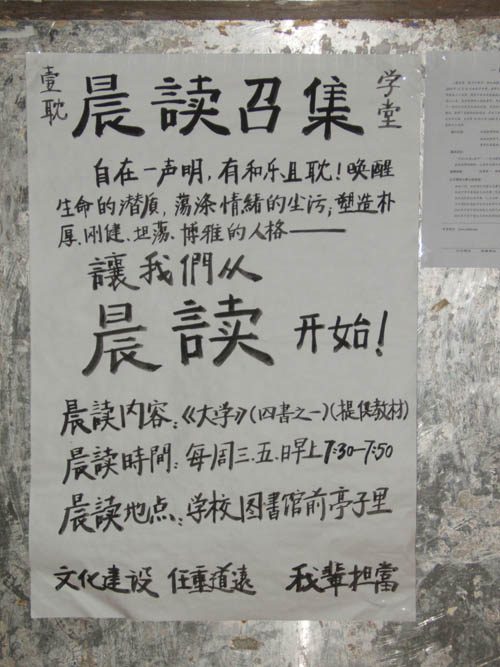 壹耽 晨读召集 学堂
自在一声明，有和乐且耽！唤醒
生命的潜质，荡涤情緒的尘污；塑造朴
厚、刚健、坦荡、博雅的人格——
讓我們从
晨读 开始！
晨读内容：《大学》（四書之一）（提供教材）
晨读時間：每周三.五.日早上7:30-7:50
晨读地点：学校图書馆前亭子里
文化建设 任重道遠 我輩担當